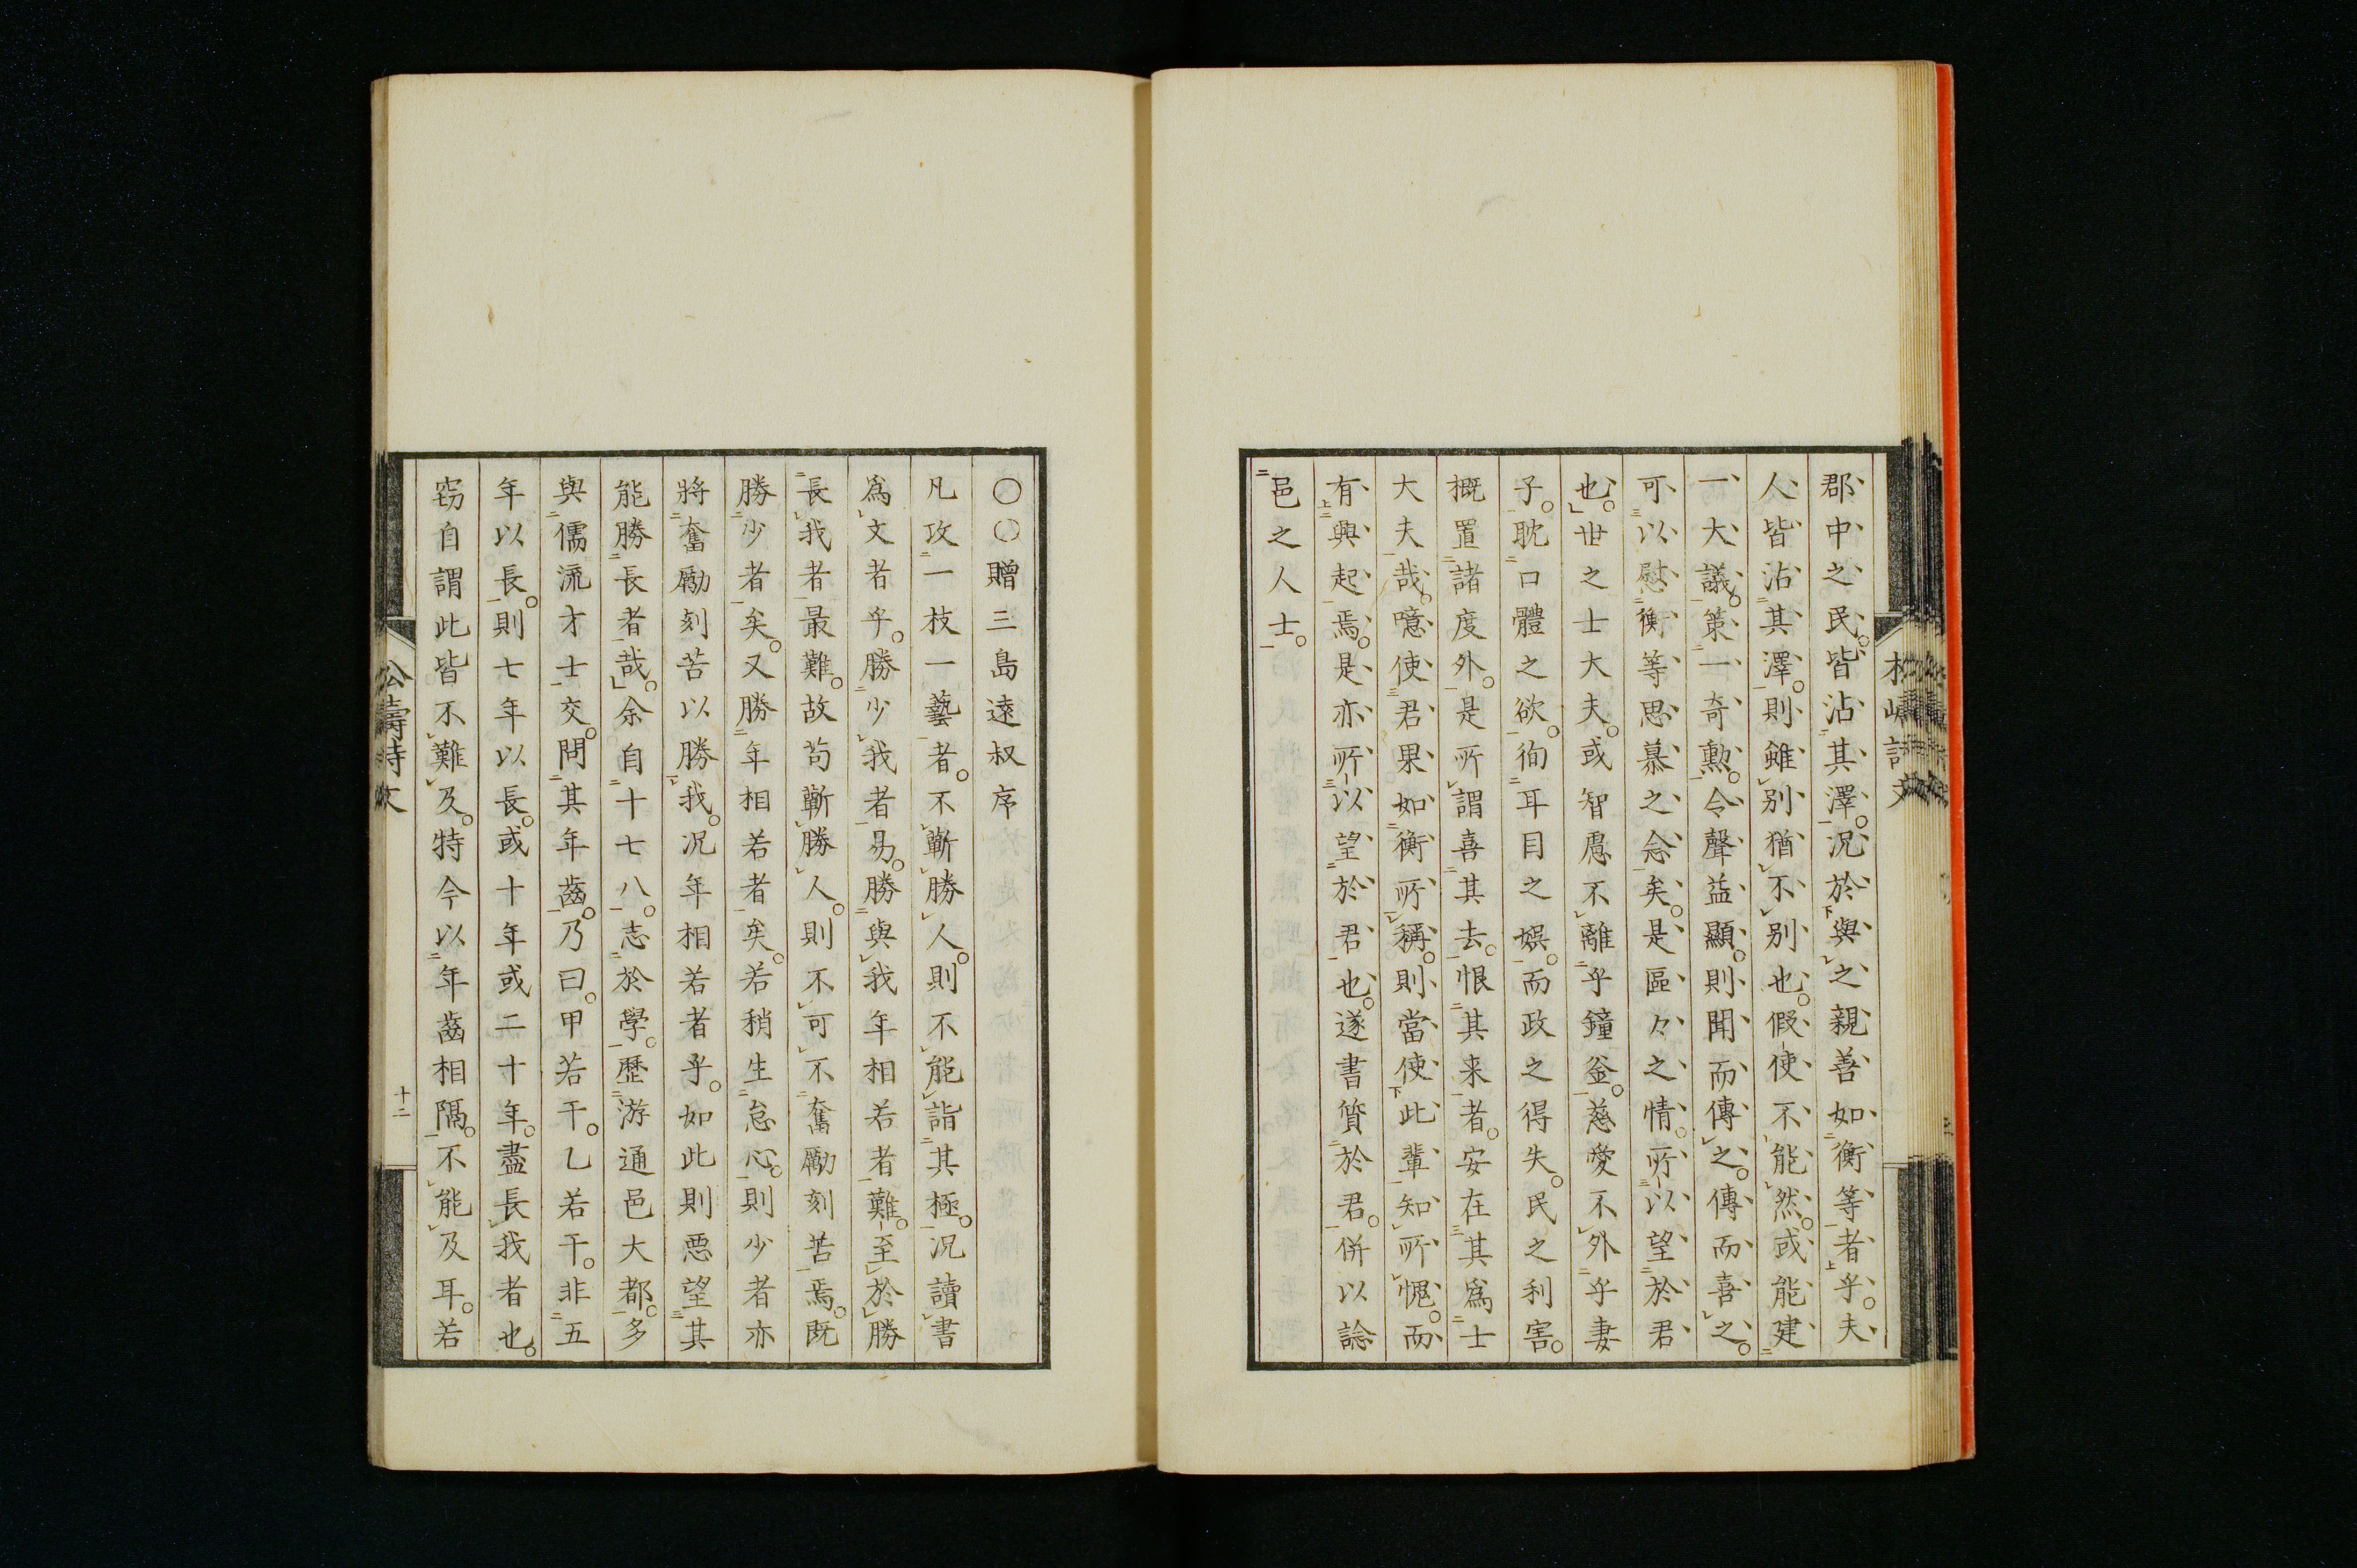 郡中之民。皆沾其澤。況於與之親善如衡等者乎。夫
人皆沾其澤。則雖別猶不別也。假使不能然。或能建
一大議。策一奇勲。令聲益顯。則聞而傳之。傳而喜之。
可以慰衡等思慕之念矣。是區々之情。所以望於君
也。世之士大夫。或智慮不離乎鐘釜。慈愛不外乎妻
子。耽口體之欲。徇耳目之娯。而政之得失。民之利害。
概置諸度外。是所謂喜其去。恨其来者。安在其爲士
大夫哉。噫使君果如衡所稱。則當使此輩知所愧。而
有興起焉。是亦所以望於君也。遂書質於君。併以諗
邑之人士。
〇〇贈三島遠叔序
凡攻一枝一藝者。不蘄勝人。則不能詣其極。況讀書
爲文者乎。勝少我者易。勝與我年相若者難。至於勝
長我者最難。故苟蘄勝人。則不可不奮勵刻苦焉。既
勝少者矣。又勝年相若者矣。若稍生怠心。則少者亦
將奮勵刻苦以勝我。況年相若者乎。如此則悪望其
能勝長者哉。余自十七八。志於學。歴游通邑大都。多
與儒流才士交。問其年齒。乃曰。甲若干。乙若干。非五
年以長。則七年以長。或十年或二十年。盡長我者也。
窃自謂此皆不難及。特今以年齒相隔。不能及耳。若
十二